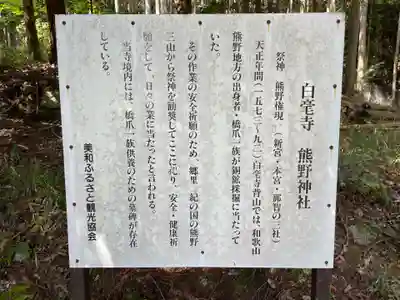 白毫寺 熊野神社
祭神 熊野権現 (新宮・本宮・那智の三社)
天正年間(一五七三〜九二)白毫寺背山では、和歌山
熊野地方の出身者・橋爪一族が銅鉱採掘に当たって
いた。
その作業の安全祈願のため、郷里 紀の国の熊野
三山から祭神を勧奨してここに祀り、安全・健康祈
願をして、日々の業に当たったと言われる。
当寺境内には、橋爪一族供養のための墓碑が存在
している。
美和ふるさと観光協会